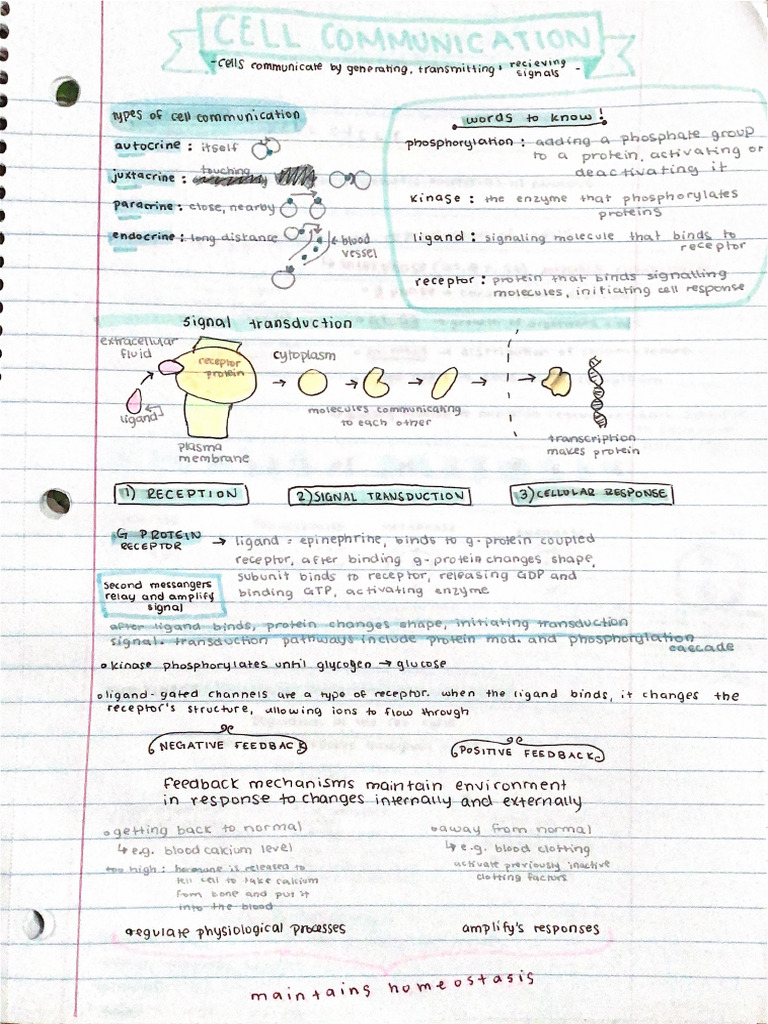 CELL COMMUNICATION
-cells communicate by generating, transmitting & recieving signals -
types of cell communication
autocrine : itself
juxtacrine : touching
paracrine : close, nearby
endocrine : long distance
← blood vessel
words to know!
phosphorylation : adding a phosphate group
to a protein, activating or
deactivating it
kinase : the enzyme that phosphorylates
proteins
ligand : signaling molecule that binds to
receptor
receptor : protein that binds signalling
molecules, initiating cell response
signal transduction
extracellular
fluid
receptor
protein
cytoplasm
ligand
molecules communicating
to each other
plasma
membrane
transcription
makes protein
1) RECEPTION
2) SIGNAL TRANSDUCTION
3) CELLULAR RESPONSE
G PROTEIN
RECEPTOR
→ ligand = epinephrine, binds to g-protein coupled
receptor, after binding g-protein changes shape,
subunit binds to receptor, releasing GDP and
binding GTP, activating enzyme
second messangers
relay and amplify
signal
after ligand binds, protein changes shape, initiating transduction
signal. transduction pathways include protein mod. and phosphorylation
cascade
• kinase phosphorylates until glycogen → glucose
• ligand-gated channels are a type of receptor. when the ligand binds, it changes the
receptor's structure, allowing ions to flow through
NEGATIVE FEEDBACK
POSITIVE FEEDBACK
feedback mechanisms maintain environment
in response to changes internally and externally
• getting back to normal
↳ e.g. blood calcium level
too high : hormone is released to
tell cell to take calcium
from bone and put it
into the blood
• away from normal
↳ e.g. blood clotting
activate previously inactive
clotting factors
regulate physiological processes
amplify's responses
maintains homeostasis